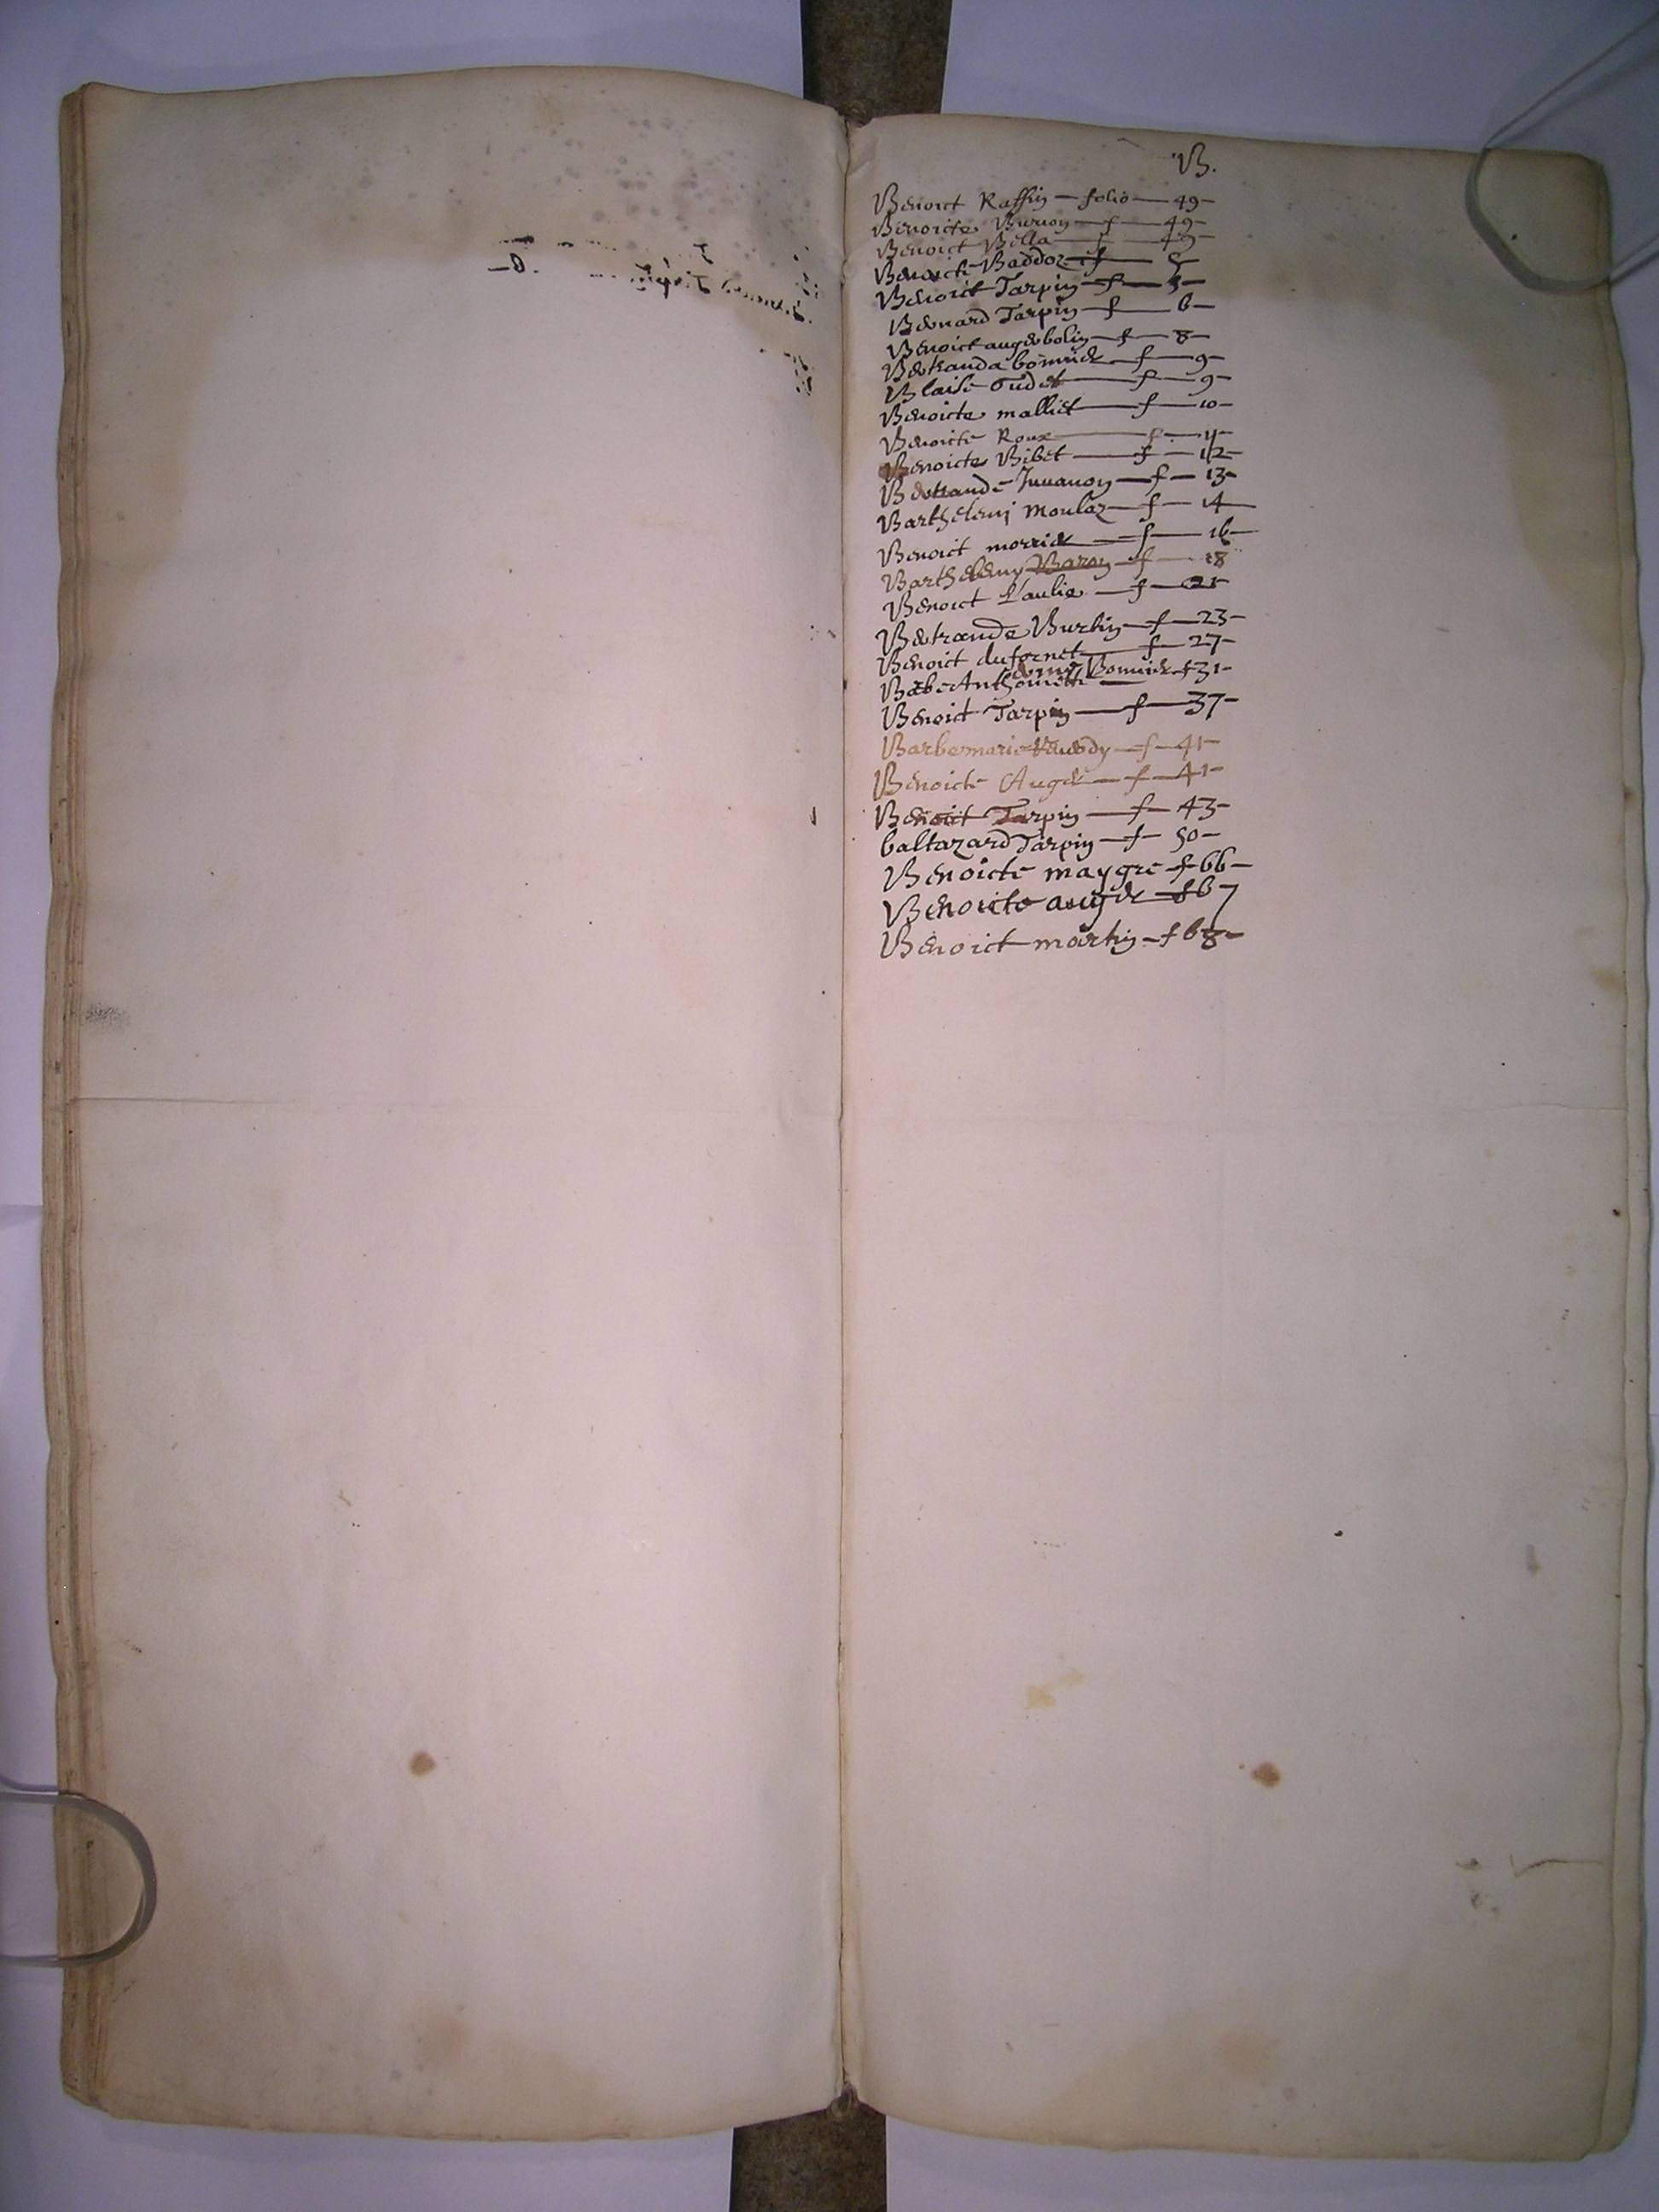 B.
Benoict Raffin — folio — 49 —
Benoicte Buron — f — 49 —
Benoict Bella — f — 49 —
Benoicte Baddoz — f — 5
Benoict Tarpin — f — 5 —
Bernard Tarpin — f — 6 —
Benoict augerbolin — f — 8 —
Bertranda — f — 9 —
Blaise Oudet — f — 9 —
Benoicte malliet — f — 10 —
Benoicte Roux — f — 11 —
Benoicte Bibet — f — 12 —
Bertrande Juuanon — f — 13 —
Barthelemj moulaz — f — 14 —
Benoict morrier — f — 16 —
Barthelemy Baron — f — 18
Benoict Paulie — f — 21 —
Bertrande Burtin — f — 23 —
Benoict dufornet — f — 27 —
Anthoinette Bonnier — f 31 —
Benoict Tarpin — f — 37 —
Barbe marie — f — 41 —
Benoicte Auger — f — 41 —
Benoict Tarpin — f — 43 —
baltazard Tarpin — f — 50 —
Benoicte maygre — f 66 —
Benoicte auger — f 67
Benoict martin — f 68 —